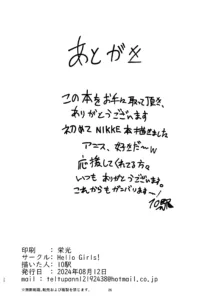 あとがき
この本をお手に取って頂き、
ありがとうございます
初めてNIKKE本描きました
アニス、好きだ〜w
応援してくれてる方。
いつもありがとうございます。
これからもガンバります〜!
10駅
印刷 : 栄光
サークル: Hello Girls!
描いた人: 10駅
発行日 : 2024年08月12日
mail : teltuponn12192438@hotmail.co.jp
※無断転載、転売および複製を禁じます。